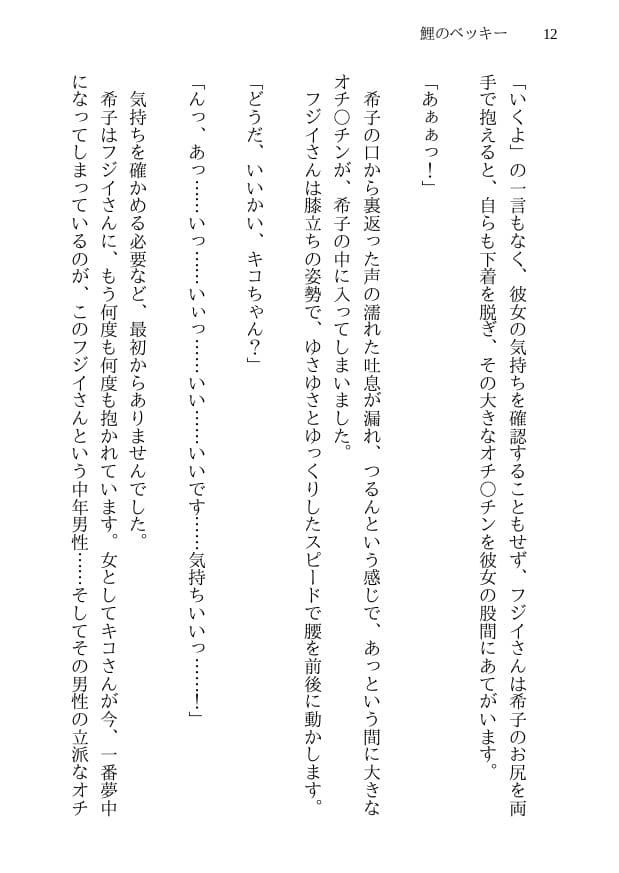 鯉のベッキー 12
「いくよ」の一言もなく、彼女の気持ちを確認することもせず、フジイさんは希子のお尻を両
手で抱えると、自らも下着を脱ぎ、その大きなオチ〇チンを彼女の股間にあてがいます。
「あぁぁっ！」
希子の口から裏返った声の濡れた吐息が漏れ、つるんという感じで、あっという間に大きな
オチ〇チンが、希子の中に入ってしまいました。
フジイさんは膝立ちの姿勢で、ゆさゆさとゆっくりしたスピードで腰を前後に動かします。
「どうだ、いいかい、キコちゃん？」
「んっ、あっ……いっ……いぃっ……いい……いいです……気持ちいいっ……！」
気持ちを確かめる必要など、最初からありませんでした。
希子はフジイさんに、もう何度も何度も抱かれています。女としてキコさんが今、一番夢中
になってしまっているのが、このフジイさんという中年男性……そしてその男性の立派なオチ